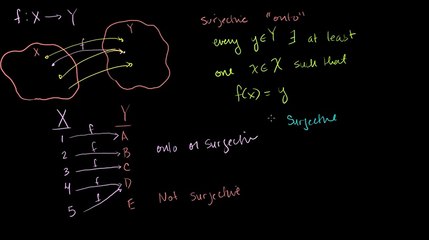 f: X → Y
surjective "onto"
X
Y
f
every y∈Y ∃ at least
one x∈X such that
f(x) = y
Surjective
X Y
1 f A
2 f B
3 f C
4 f D
5 f E
onto or surjective
Not surjective